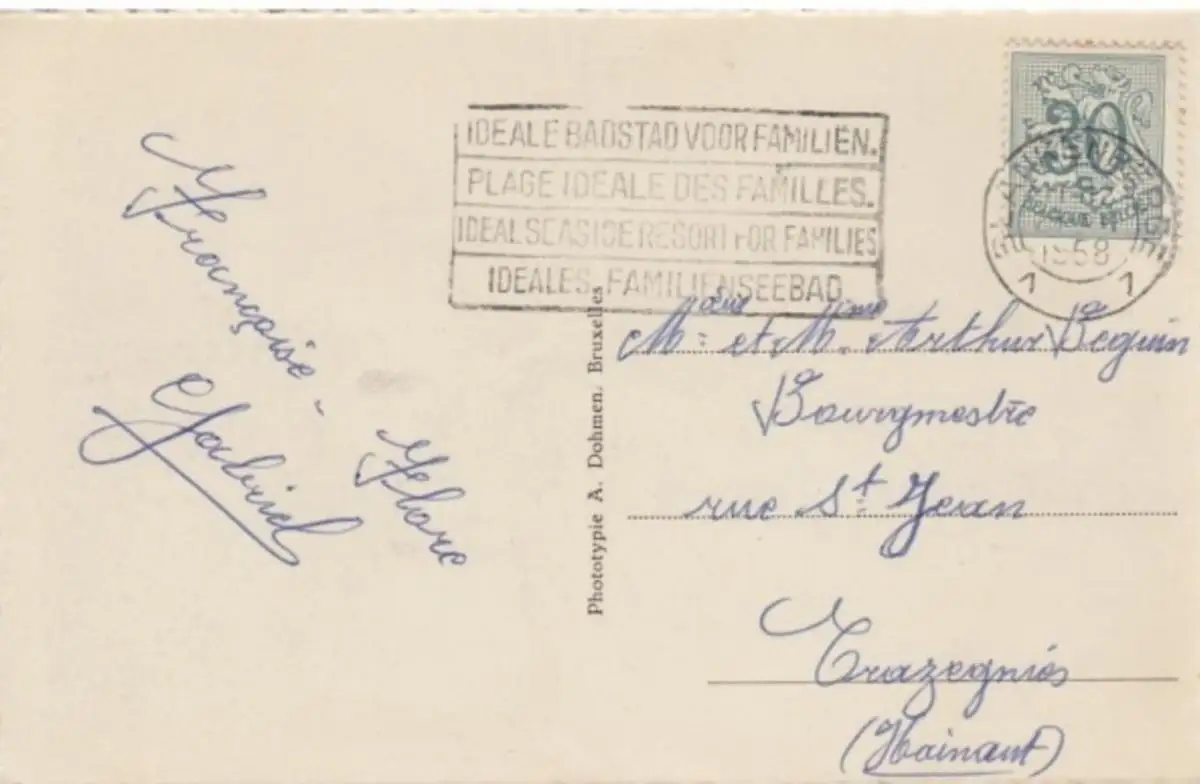 IDEALE BADSTAD VOOR FAMILIËN.
PLAGE IDEALE DES FAMILLES.
IDEAL SEASIDE RESORT FOR FAMILIES
IDEALES FAMILIENSEEBAD
30
BELGIQUE BELGIE
BLANKENBERGE
1958
1 1
Françoise -
Gabriel
Flore
Phototypie A. Dohmen, Bruxelles
et Mme Arthur Beguin
Bourgmestre
rue St Jean
Trazegnies
(Hainaut)